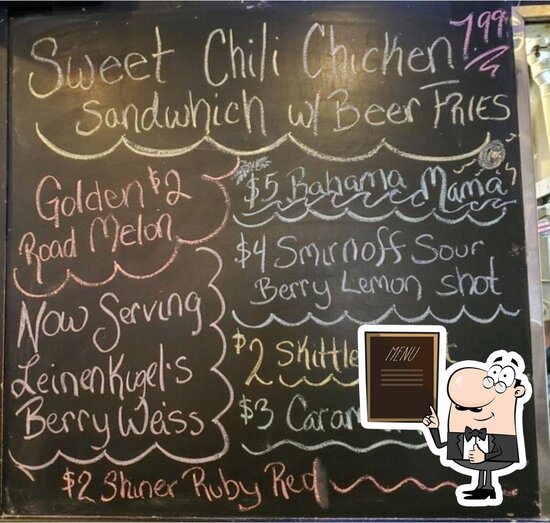 Sweet Chili Chicken 7.99
Sandwhich w/ Beer Fries
Golden $2
Road Melon
Now Serving
Leinenkugel's
Berry Weiss
$5 Bahama Mama's
$4 Smirnoff Sour
Berry Lemon Shot
$2
$3
$2 Shiner Ruby Red
MENU